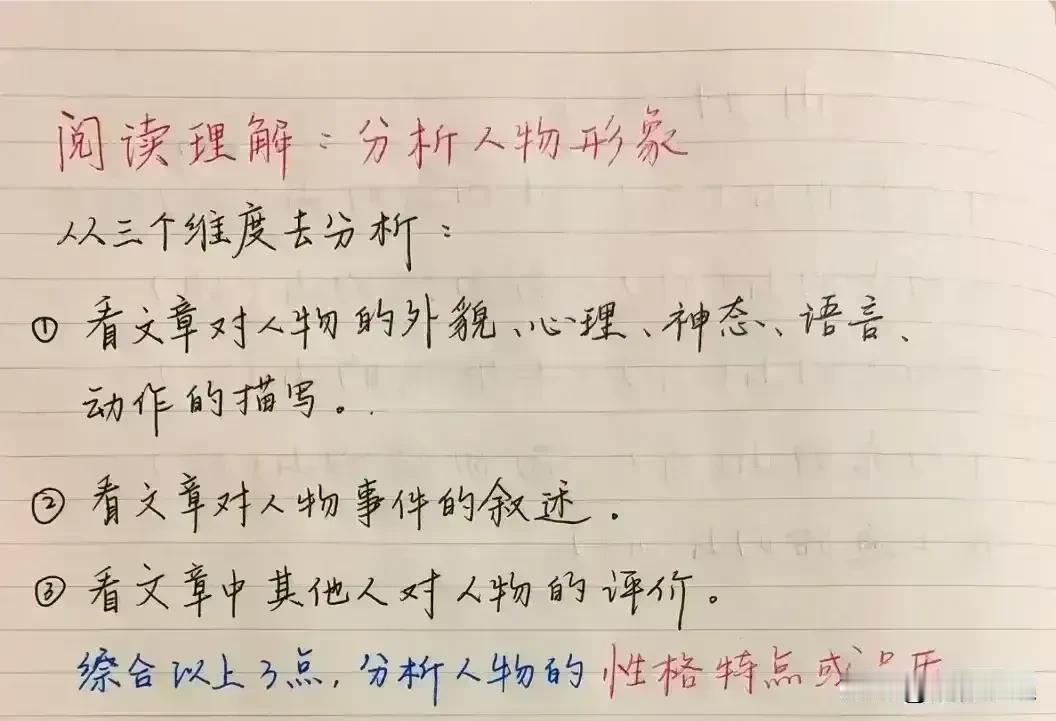 阅读理解:分析人物形象
从三个维度去分析:
① 看文章对人物的外貌、心理、神态、语言、
动作的描写。
② 看文章对人物事件的叙述.
③ 看文章中其他人对人物的评价。
综合以上3点,分析人物的性格特点或